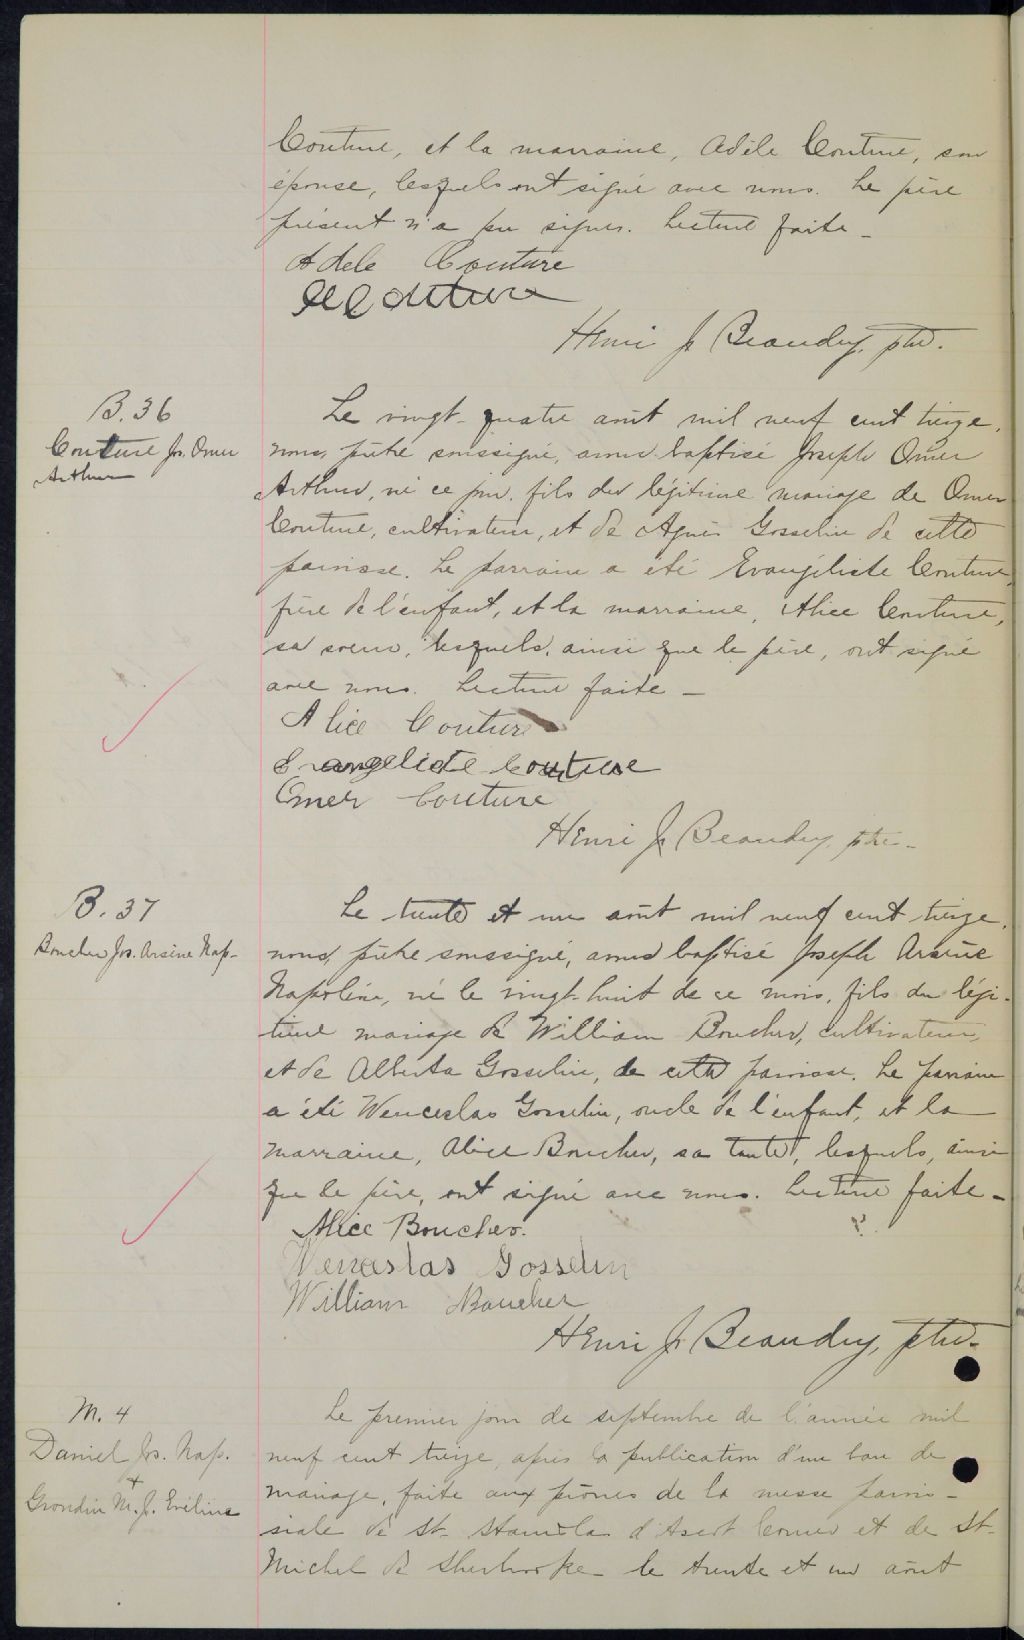 Couture, et la marraine, Adèle Couture, son
épouse, lesquels ont signé avec nous. Le père
présent n'a pu signer. Lecture faite _
Adele Couture
Couture
Henri J. Beaudry, ptre.
B. 36
Couture Js. Omer
Arthur
Le vingt-quatre août mil neuf cent treize,
nous, prêtre soussigné, avons baptisé Joseph Omer
Arthur, né ce jour, fils du légitime mariage de Omer
Couture, cultivateur, et de Agnès Gosselin de cette
paroisse. Le parrain a été Evangéliste Couture,
frère de l'enfant, et la marraine, Alice Couture,
sa soeur, lesquels, ainsi que le père, ont signé
avec nous. Lecture faite _
Alice Couture
Evangeliste Couture
Omer Couture
Henri J. Beaudry, ptre.
B. 37
Boucher Jos. Arsène Nap.
Le trente et un août mil neuf cent treize,
nous, prêtre soussigné, avons baptisé Joseph Arsène
Napoléon, né le vingt-huit de ce mois, fils du légi-
time mariage de William Boucher, cultivateur,
et de Alberta Gosselin, de cette paroisse. Le parrain
a été Wenceslas Gosselin, oncle de l'enfant, et la
marraine, Alice Boucher, sa tante, lesquels, ainsi
que le père, ont signé avec nous. Lecture faite _
Alice Boucher.
Wenceslas Gosselin
William Boucher
Henri J. Beaudry, ptre.
M. 4
Daniel Js. Nap.
+
Grondin M. J. Eveline
Le premier jour de septembre de l'année mil
neuf cent treize, après la publication d'un ban de
mariage, faite aux prônes de la messe parois-
siale de St. Stanislas d'Ascot Corner et de St.
Michel de Sherbrooke le trente et un août